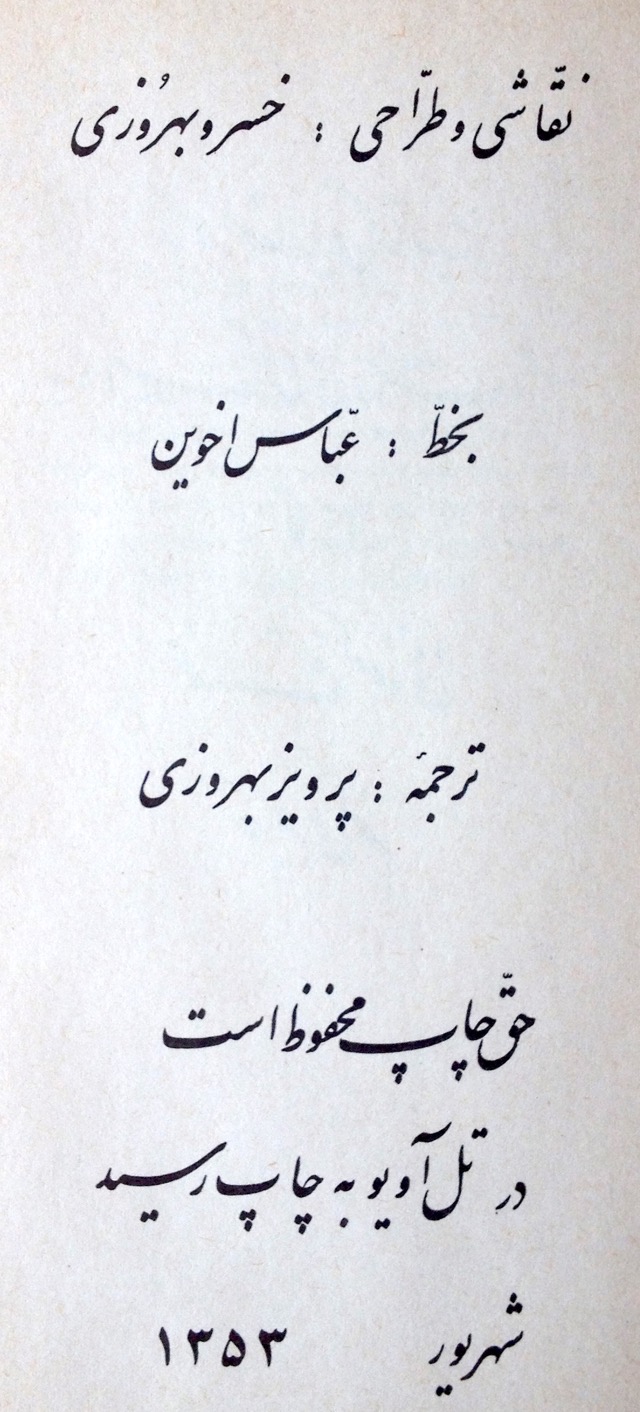 نقّاشی و طرّاحی : خسرو بهرُوزی
بخطّ : عبّاس اخوین
ترجمهٔ : پرویز بهروزی
حقّ چاپ محفوظ است
در تل آویو به چاپ رسید
شهریور ۱۳۵۳